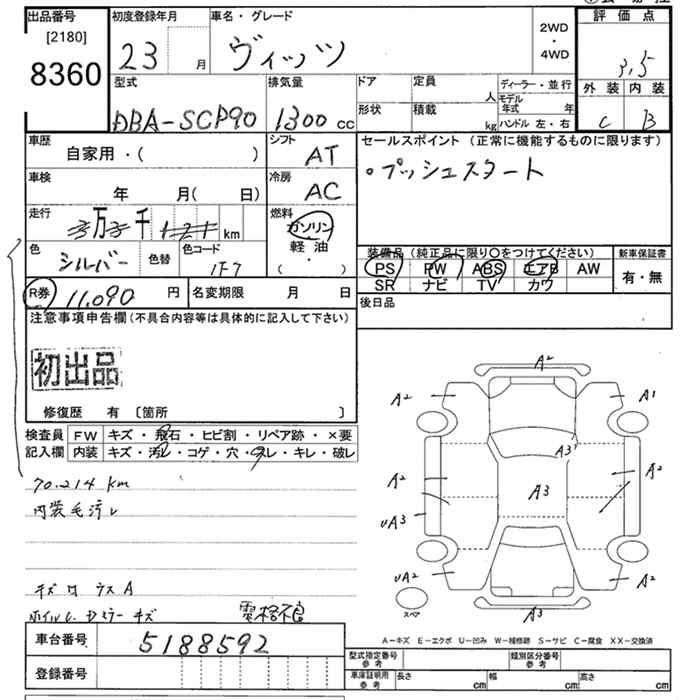 出品番号
[2180]
8360
初度登録年月
23 月
車名・グレード
ヴィッツ
2WD
・
4WD
評価点
3.5
外装 内装
C B
型式
DBA-SCP90
排気量
1300 cc
ドア
形状
定員 人
積載 kg
ディーラー・並行
モデル年式 年
ハンドル 左・右
車歴
自家用・( )
シフト
AT
セールスポイント (正常に機能するものに限ります)
・プッシュスタート
車検
年 月( 日)
冷房
AC
走行
万 千 km
燃料
ガソリン
軽油
( ・ )
色
シルバー
色替
色コード
1F7
装備品 (純正品に限り○をつけてください)
PS PW ABS エアB AW
SR ナビ TV カワ
新車保証書
有・無
R券 11,090 円
名変期限 月 日
後日品
注意事項申告欄 (不具合内容等は具体的に記入して下さい)
初出品
修復歴 有 〔箇所 〕
検査員 FW キズ・飛石・ヒビ割・リペア跡・×要
記入欄 内装 キズ・汚レ・コゲ・穴・スレ・キレ・破レ
70.214 km
内装毛汚レ
A2
A2 A1
A3
A2 A2
A3
UA3
UA2 A2
スペア
A3
A-キズ E-エクボ U-凹み W-補修跡 S-サビ C-腐食 XX-交換済
車台番号 5188592
登録番号
型式指定番号
参考
類別区分番号
参考
車庫証明用
参考
長さ cm
幅 cm
高さ cm